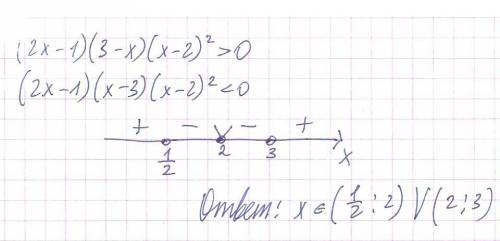 (2x-1)(3-x)(x-2)²>0
(2x-1)(x-3)(x-2)²<0
+ - - +
1/2 2 3 x
Ответ: x∈(1/2;2)∨(2;3)